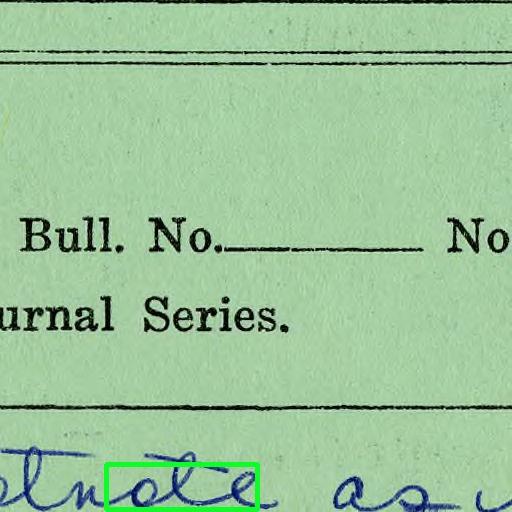 Bull. No. No
urnal Series.
otnote as